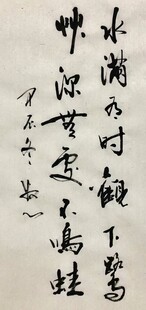 水满有时观下鹭
草深无处不鸣蛙
甲辰冬